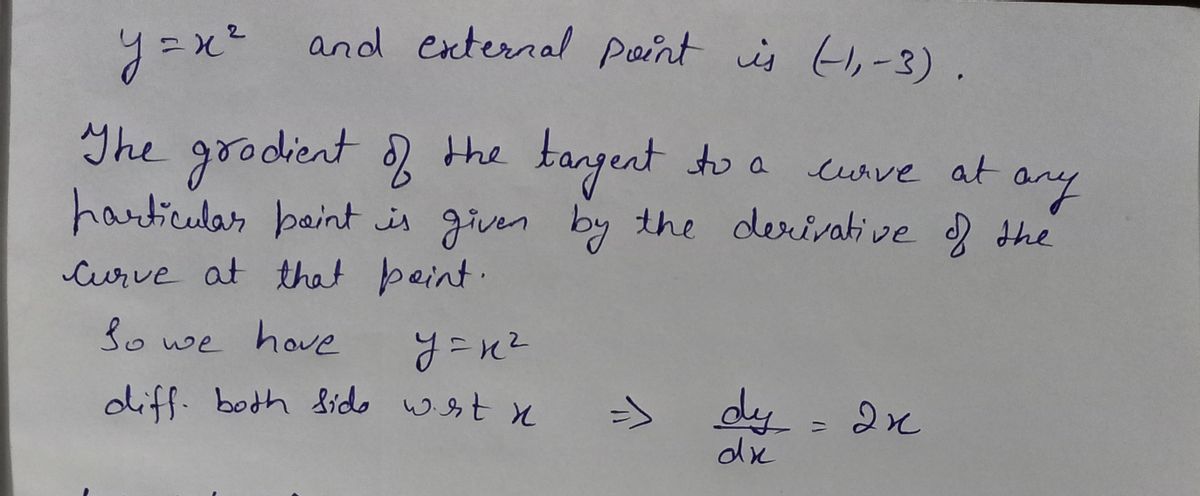 y = x² and external point is (-1, -3).
The gradient of the tangent to a curve at any
particular point is given by the derivative of the
curve at that point.
So we have y = x²
diff. both side w.r.t x => dy/dx = 2x